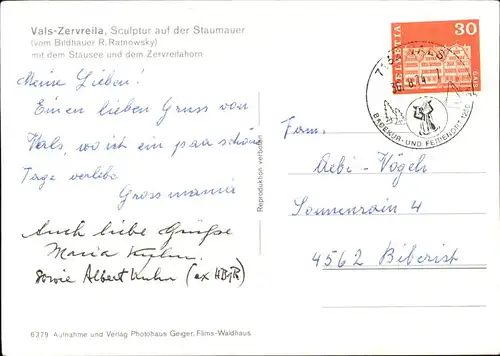 Vals-Zervreila, Sculptur auf der Staumauer
(vom Bildhauer R. Ratnowsky)
mit dem Stausee und dem Zervreilahorn
Meine Lieben!
Einen lieben Gruss von
Vals, wo ich ein paa schöne
Tage verlebe
Grossmama
Auch liebe Grüsse
Maria Kuhn.
sowie Albert Kuhn
6379 Aufnahme und Verlag Photohaus Geiger, Flims-Waldhaus
Reproduktion verboten
HELVETIA
30
VALS
BADEKUR- UND FERIENORT
Fam.
Aebi-Vögeli
Sonnenrain 4
4562 Biberist